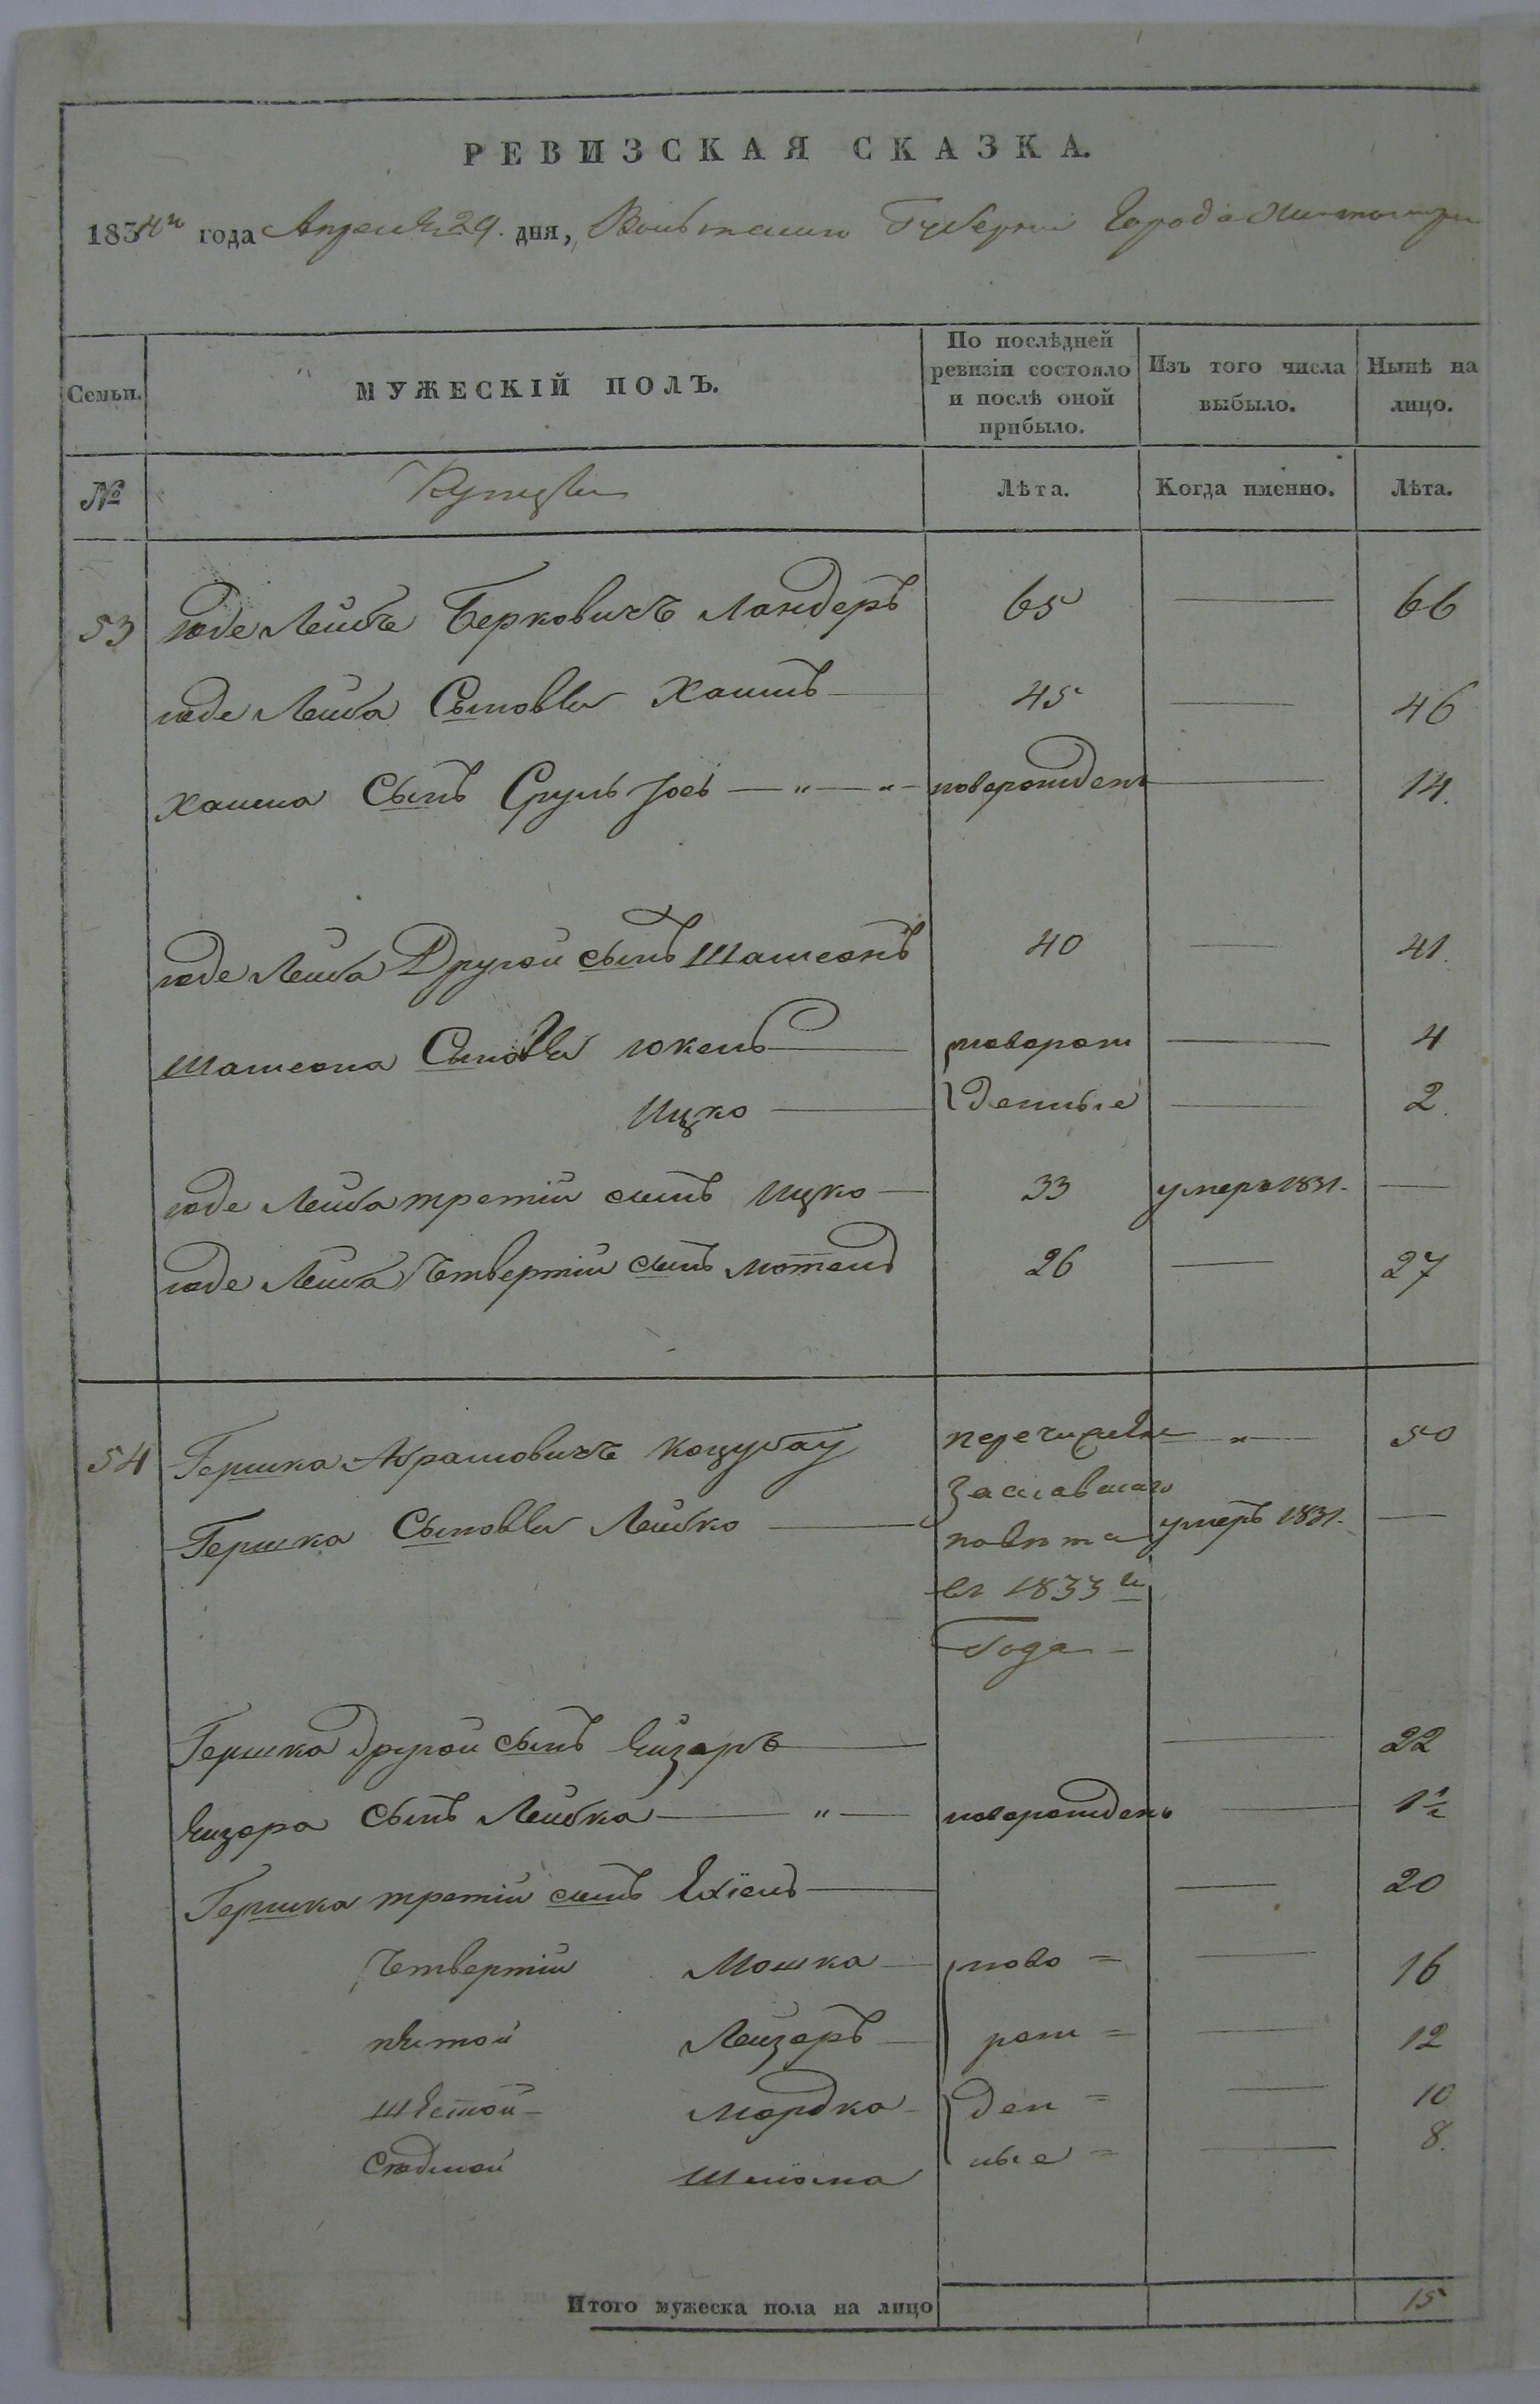 РЕВИЗСКАЯ СКАЗКА.
1834го года Апреля 29. дня, Волынской Губернии Города Житомира
Семьи. МУЖЕСКІЙ ПОЛЪ. По послѣдней ревизіи состояло и послѣ оной прибыло. Изъ того числа выбыло. Нынѣ на лицо.
№ Купцы Лѣта. Когда именно. Лѣта.
53 Юде Лейбъ Берковичъ Ландеръ 65 — 66
Юде Лейба Сыновья Хаимъ — 45 — 46
Хаима Сынъ Сруль Іось — " — " — новорожденъ — 14.
Юде Лейба Другой сынъ Шамсонъ 40 — 41.
Шамсона Сыновья Юкель — новорож — 4
Ицко — денные — 2.
Юде Лейба третій сынъ Ицко — 33 умеръ 1831. —
Юде Лейба Четвертій сынъ Мотель 26 — 27
54 Гершка Абрамовичъ Коцубау перечисленъ — " — 50
Заславскаго
Гершка Сыновья Лейбко — повѣта умеръ 1831. —
въ 1833м
Года —
Гершка другой сынъ Ейзеръ — — 22
Ейзера сынъ Лейбка — " — новорожденъ — 1 1/2
Гершка третій сынъ Ехіель — — 20
Четвертій Мошка — ново = — 16
пятой Лейзеръ — рож = — 12
шестой — Мордка — ден = — 10
Сѣдмой Шліома ные = — 8.
Итого мужеска пола на лицо 15